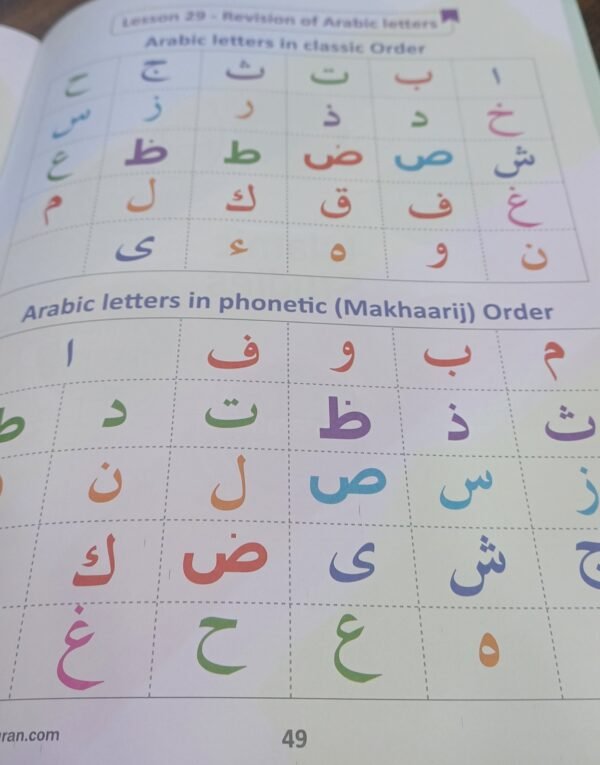 Lesson 29 - Revision of Arabic letters
Arabic letters in classic Order
ا ب ت ث ج ح
خ د ذ ر ز س
ش ص ض ط ظ ع
غ ف ق ك ل م
ن و ه ء ى
Arabic letters in phonetic (Makhaarij) Order
م ب و ف ا
ث ذ ظ ت د ط
ز س ص ل ن
ج ش ى ض ك
ه ع ح غ
ran.com
49